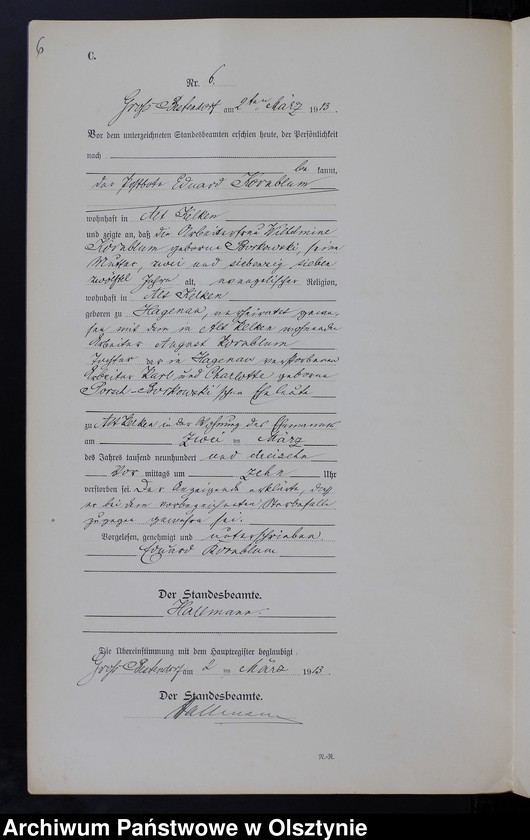 6
C.
Nr. 6.
Groß Bestendorf am 2ten März 1913.
Vor dem unterzeichneten Standesbeamten erschien heute, der Persönlichkeit
nach
be kannt,
der Postbote Eduard Kornblum
wohnhaft in Alt Kelken
und zeigte an, daß die Arbeiterfrau Wilhelmine
Kornblum geborne Borkowski, seine
Mutter, zwei und siebenzig sieben
zwölftel Jahre alt, evangelischer Religion,
wohnhaft in Alt Kelken
geboren zu Hagenau, verheiratet gewe-
sen mit dem in Alt Kelken wohnenden
Arbeiter August Kornblum
Tochter der in Hagenau verstorbenen
Arbeiter Karl und Charlotte geborne
Borkowski'schen Eheleute
zu Alt Kelken in der Wohnung des Ehemanns
am zwei ten März
des Jahres tausend neunhundert und dreizehn
Vor mittags um zehn Uhr
verstorben sei. Der Anzeigende erklärte, daß
er bei dem vorbezeichneten Sterbefalle
zugegen gewesen sei.
Vorgelesen, genehmigt und unterschrieben.
Eduard Kornblum
Der Standesbeamte.
Hallmann.
Die Übereinstimmung mit dem Hauptregister beglaubigt
Groß Bestendorf am 2 ten März 1913.
Der Standesbeamte.
Hallmann
N.-R.
Archiwum Państwowe w Olsztynie